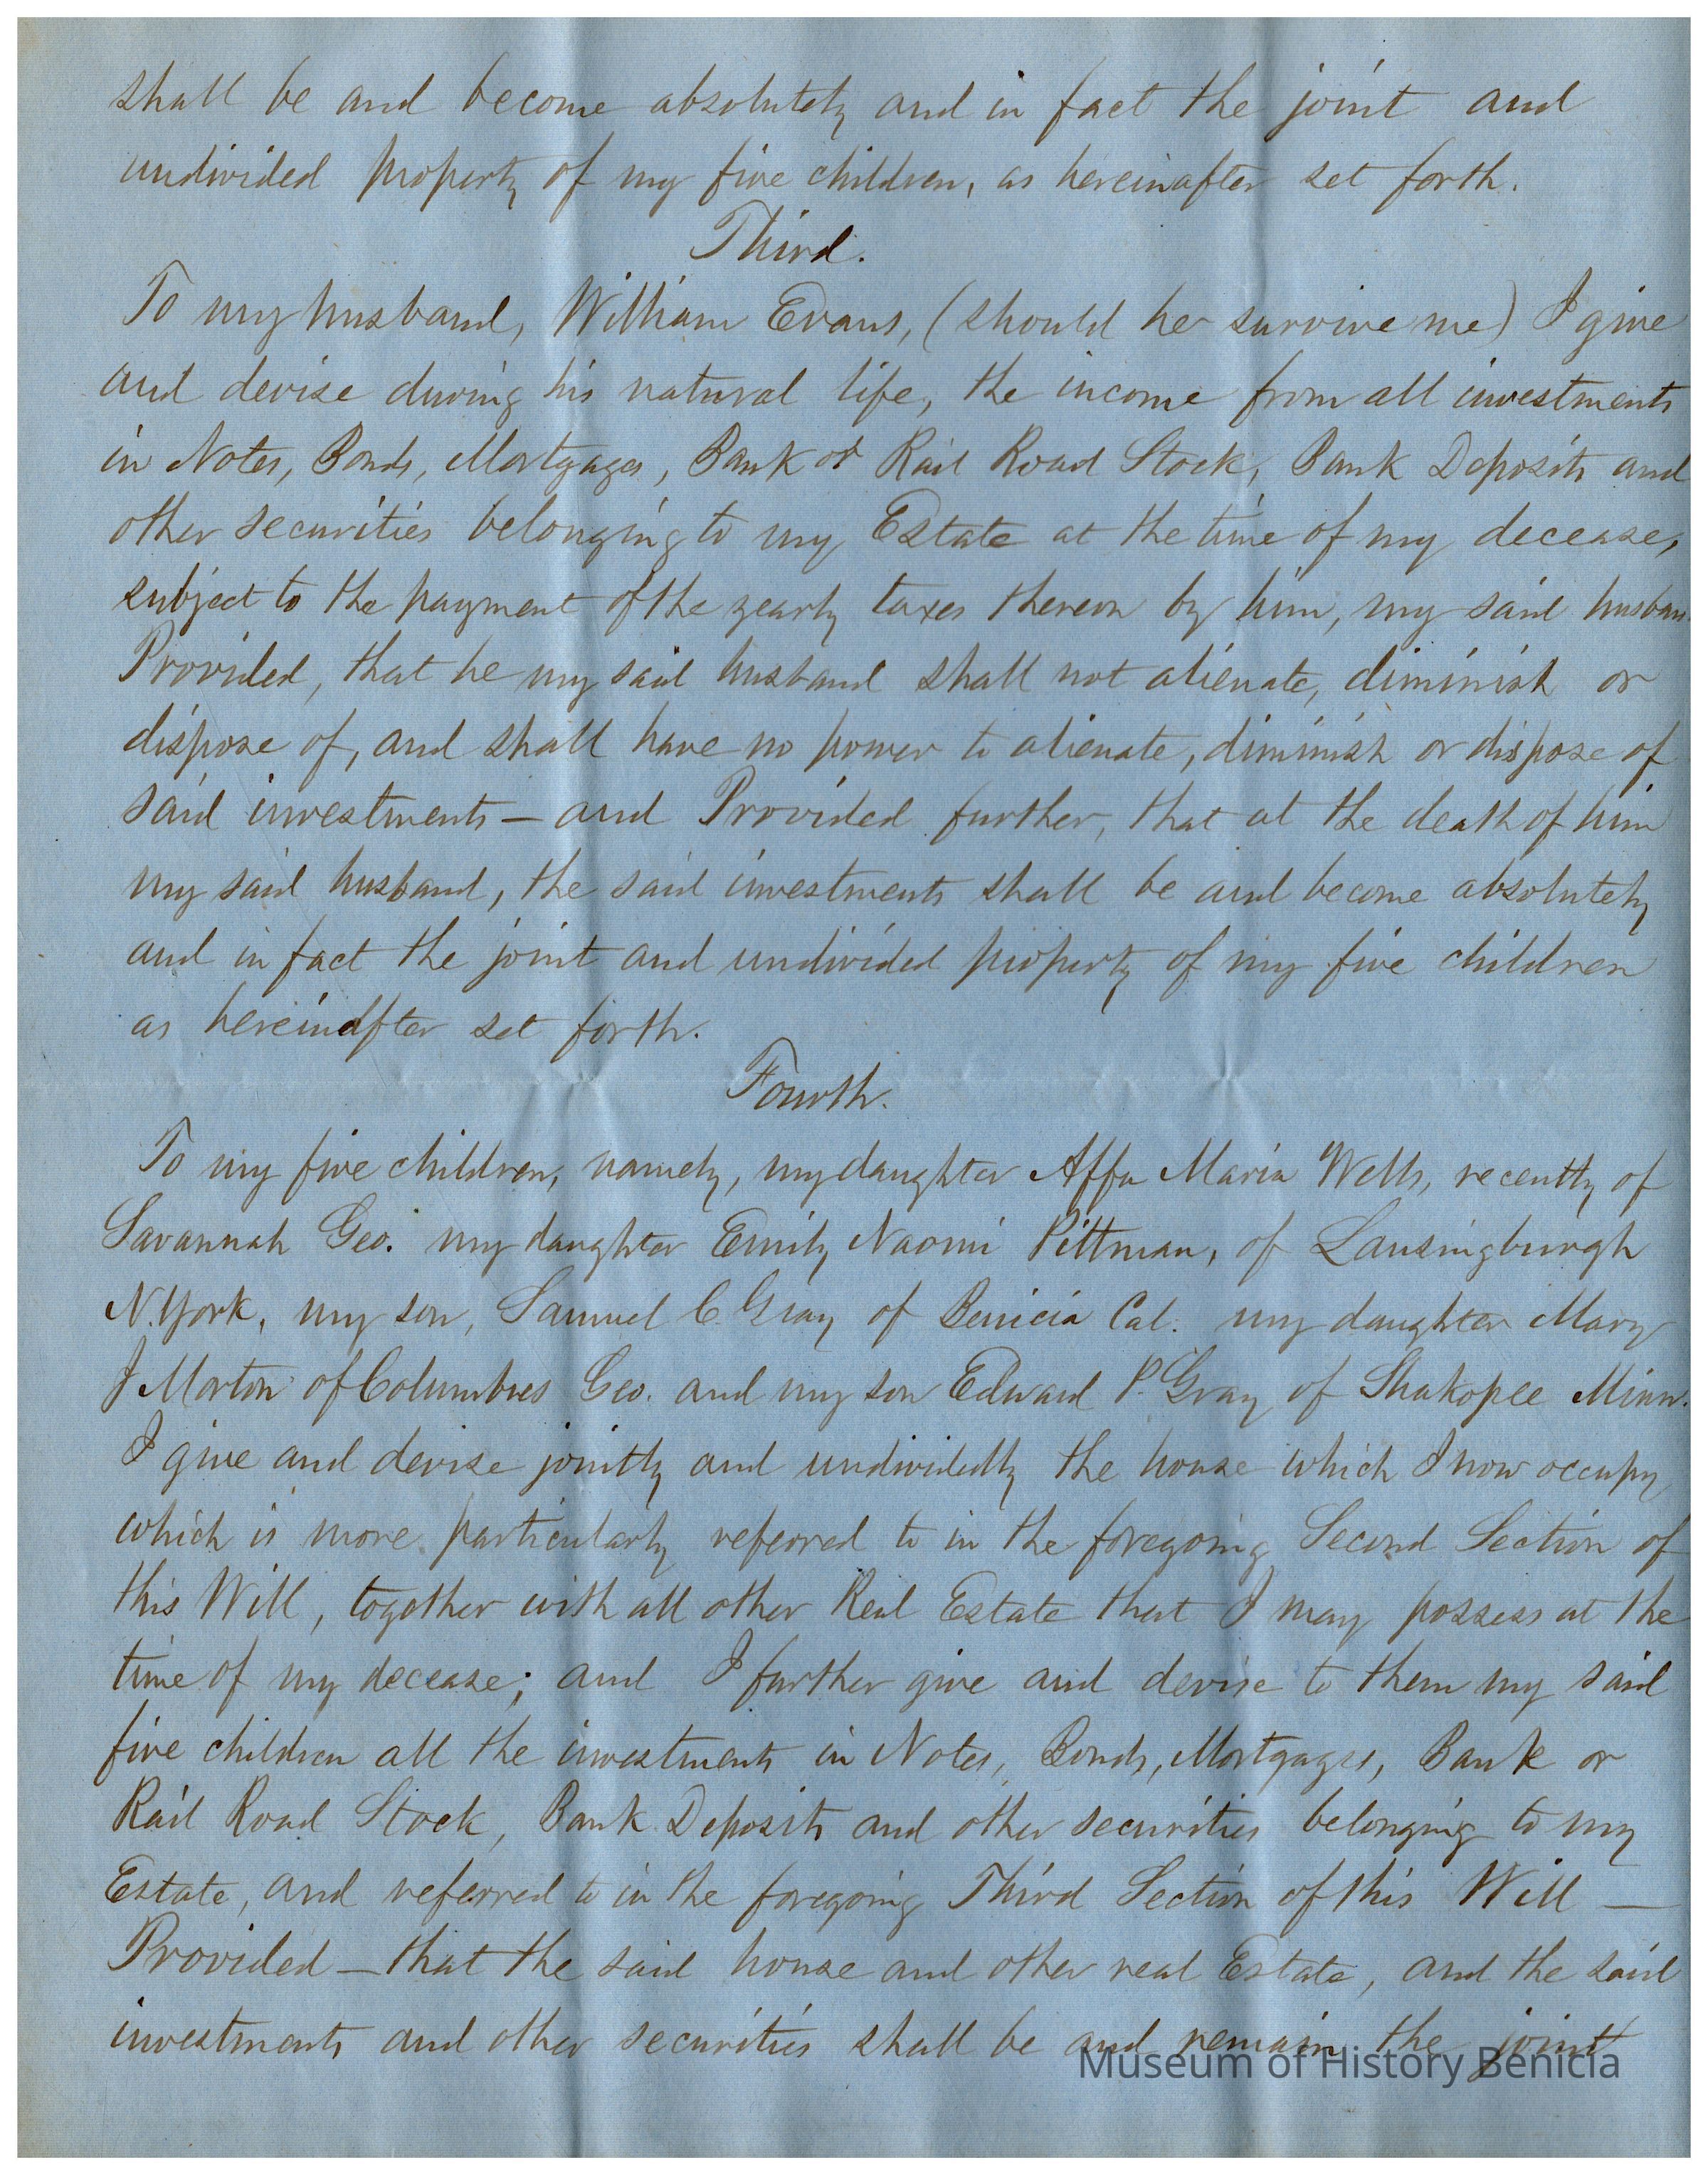 shall be and become absolutely and in fact the joint and
undivided property of my five children, as hereinafter set forth.
Third.
To my husband, William Evans, (should he survive me) I give
and devise during his natural life, the income from all investments
in Notes, Bonds, Mortgages, Bank or Rail Road Stock, Bank Deposits and
other securities belonging to my Estate at the time of my decease,
subject to the payment of the yearly taxes thereon by him, my said husban
Provided, that he my said husband shall not alienate, diminish or
dispose of, and shall have no power to alienate, diminish or dispose of
said investments — and Provided further, that at the death of him
my said husband, the said investments shall be and become absolutely
and in fact the joint and undivided property of my five children
as hereinafter set forth.
Fourth.
To my five children, namely, my daughter Affa Maria Wells, recently of
Savannah Geo. my daughter Emily Naomi Pittman, of Lansingburgh
N.York, my son, Samuel C. Gray of Benicia Cal. my daughter Mary
J Morton of Columbus Geo. and my son Edward P. Gray of Shakopee Minn.
I give and devise jointly and undividedly the house which I now occupy
which is more particularly referred to in the foregoing Second Section of
this Will, together with all other Real Estate that I may possess at the
time of my decease; and I further give and devise to them my said
five children all the investments in Notes, Bonds, Mortgages, Bank or
Rail Road Stock, Bank Deposits and other securities belonging to my
Estate, and referred to in the foregoing Third Section of this Will —
Provided — that the said house and other real Estate, and the said
investments and other securities shall be and remain the joint
Museum of History Benicia